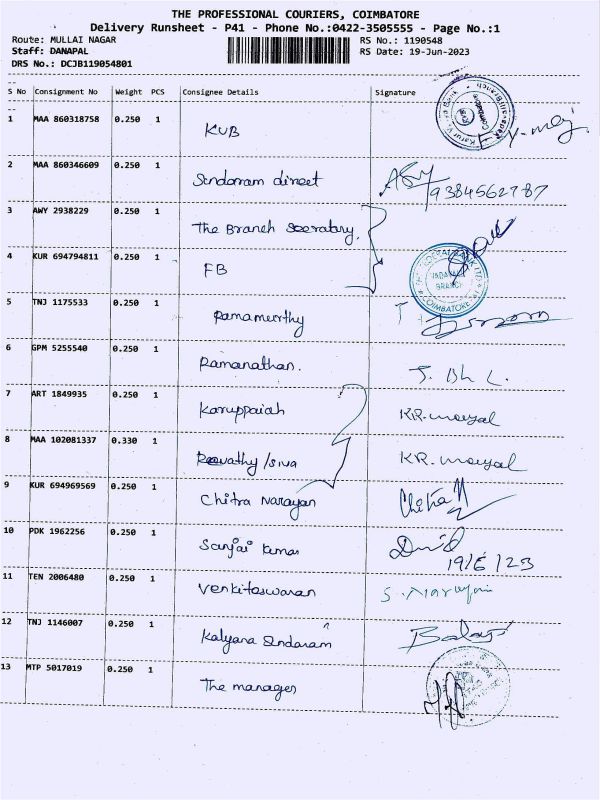 THE PROFESSIONAL COURIERS, COIMBATORE
Delivery Runsheet - P41 - Phone No.:0422-3505555 - Page No.:1
Route: MULLAI NAGAR RS No.: 1190548
Staff: DANAPAL RS Date: 19-Jun-2023
DRS No.: DCJB119054801
S No Consignment No Weight PCS Consignee Details Signature
1 MAA 860318758 0.250 1 KUB
2 MAA 860346609 0.250 1 Sundaram direct 9384562787
3 AWY 2938229 0.250 1 The Branch Secratary.
4 KUR 694794811 0.250 1 FB
BRANCH
COIMBATORE
5 TNJ 1175533 0.250 1 Ramamoorthy
6 GPM 5255540 0.250 1 Ramanathan. J. Bh L.
7 ART 1849935 0.250 1 Karuppaiah KR. mayal
8 MAA 102081337 0.330 1 Revathy /siva KR. mayal
9 KUR 694969569 0.250 1 Chitra Narayan Chitra N
10 PDK 1962256 0.250 1 Sanjai kumar
19/6/23
11 TEN 2006480 0.250 1 Venkitaswaran S. Narayani
12 TNJ 1146007 0.250 1 Kalyana Sundaram Balaji
13 MTP 5017019 0.250 1 The manager